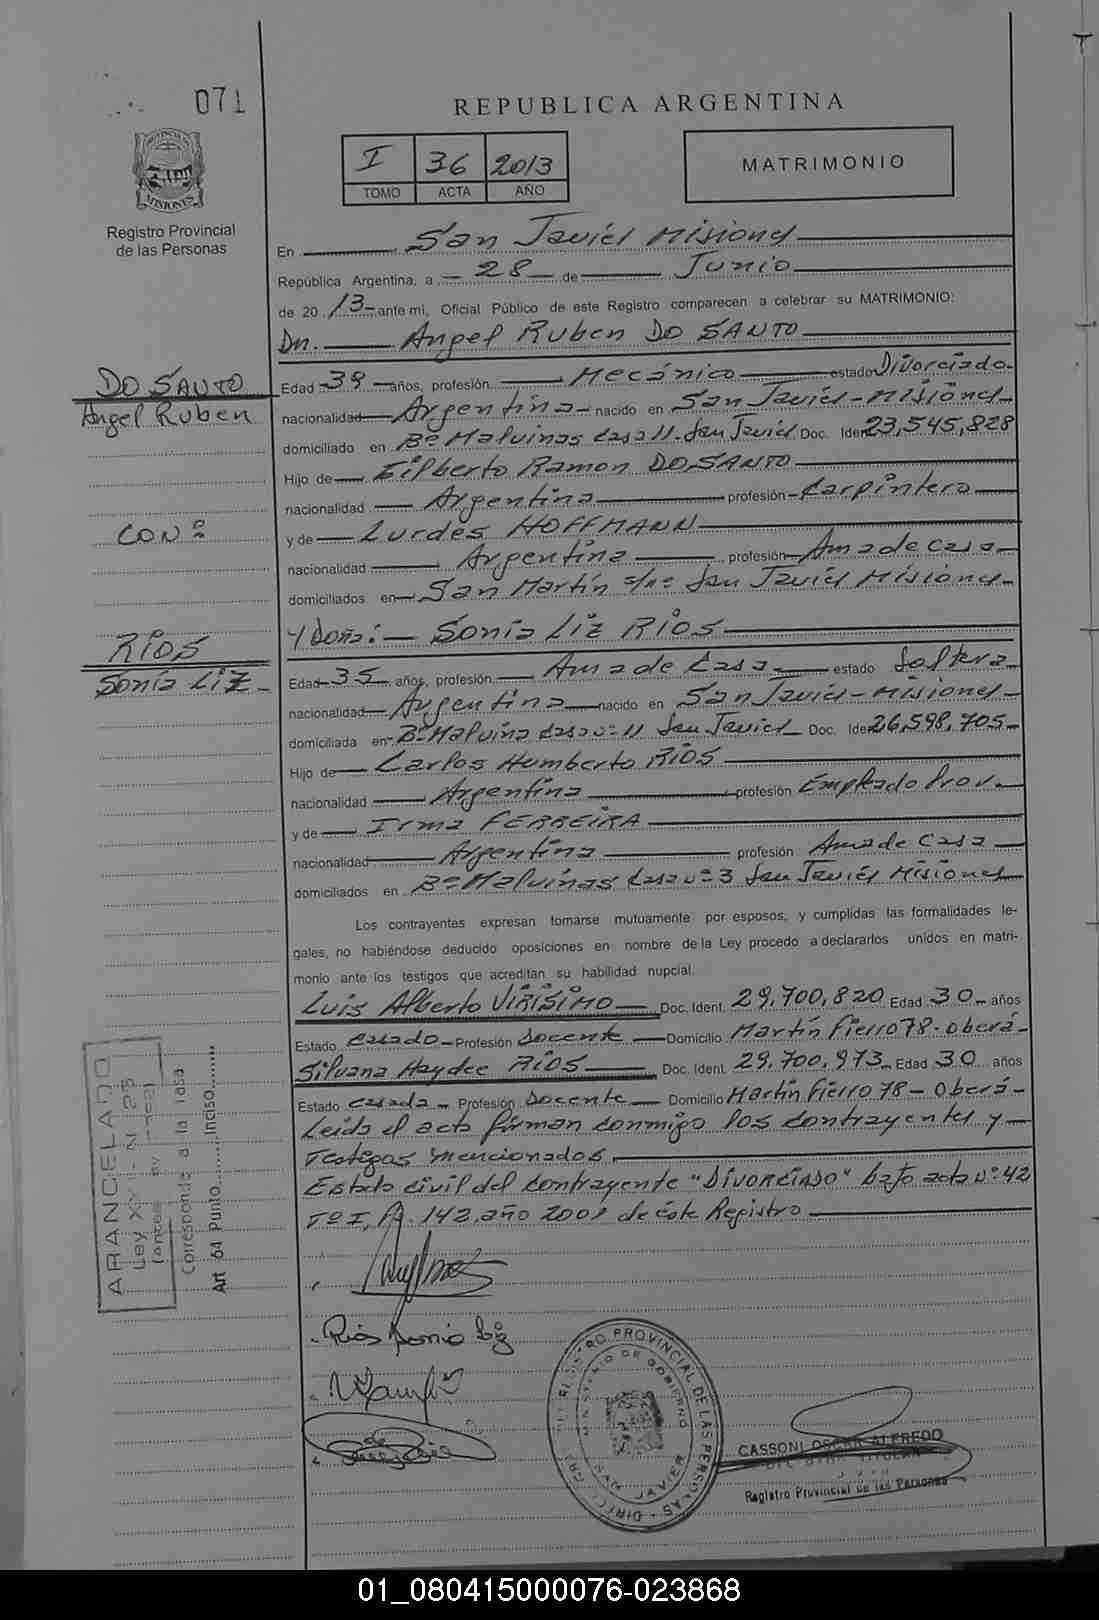 071
REPUBLICA ARGENTINA
I 36 2013
TOMO ACTA AÑO
MATRIMONIO
PROVINCIA DE
MISIONES
Registro Provincial
de las Personas
En San Javier Misiones
República Argentina, a 28 de Junio
de 20 13 ante mi, Oficial Público de este Registro comparecen a celebrar su MATRIMONIO:
Dn. Angel Ruben DO SANTO
DO SANTO
Angel Ruben
Edad 39 años, profesión Mecánico estado Divorciado
nacionalidad Argentina nacido en San Javier - Misiones
domiciliado en Bº Malvinas Casa 11. San Javier Doc. Iden 23,545,828
Hijo de Eilberto Ramon DO SANTO
nacionalidad Argentina profesión Carpintero
CON:
y de Lurdes HOFFMANN
nacionalidad Argentina profesión Ama de casa
domiciliados en San Martín s/nº San Javier Misiones
Y Doña: Sonia Liz RIOS
RIOS
Sonia Liz
Edad 35 años, profesión Ama de Casa estado Soltera
nacionalidad Argentina nacido en San Javier - Misiones
domiciliada en Bº Malvina Casa nº 11 San Javier Doc. Iden 26,598,705
Hijo de Carlos Humberto RIOS
nacionalidad Argentina profesión Empleado Prov.
y de Irma FERREIRA
nacionalidad Argentina profesión Ama de Casa
domiciliados en Bº Malvinas Casa nº 3 San Javier Misiones
Los contrayentes expresan tomarse mutuamente por esposos, y cumplidas las formalidades le-
gales, no habiéndose deducido oposiciones en nombre de la Ley procedo a declararlos unidos en matri-
monio ante los testigos que acreditan su habilidad nupcial.
Luis Alberto VIRISIMO Doc. Ident. 29,700,820 Edad 30 años
Estado Casado Profesión Docente Domicilio Martín Fierro 78 - Oberá
Silvana Haydee RIOS Doc. Ident. 29,700,973 Edad 30 años
Estado Casada Profesión Docente Domicilio Martín Fierro 78 - Oberá
Leida el acta firman conmigo los contrayentes y
Testigos mencionados.
Estado civil del contrayente "Divorciado" bajo acta nº 42
Tº I, Fº. 142, año 2001 de este Registro
ARANCELADO
Ley XVI - N 25
Corresponde a la Tasa
Art 64 Punto........Inciso........
Rios Sonia Liz
REGISTRO PROVINCIAL DE LAS PERSONAS
MINISTERIO DE GOBIERNO
SAN JAVIER
CASSONI OSCAR ALFREDO
Registro Provincial de las Personas
01_080415000076-023868